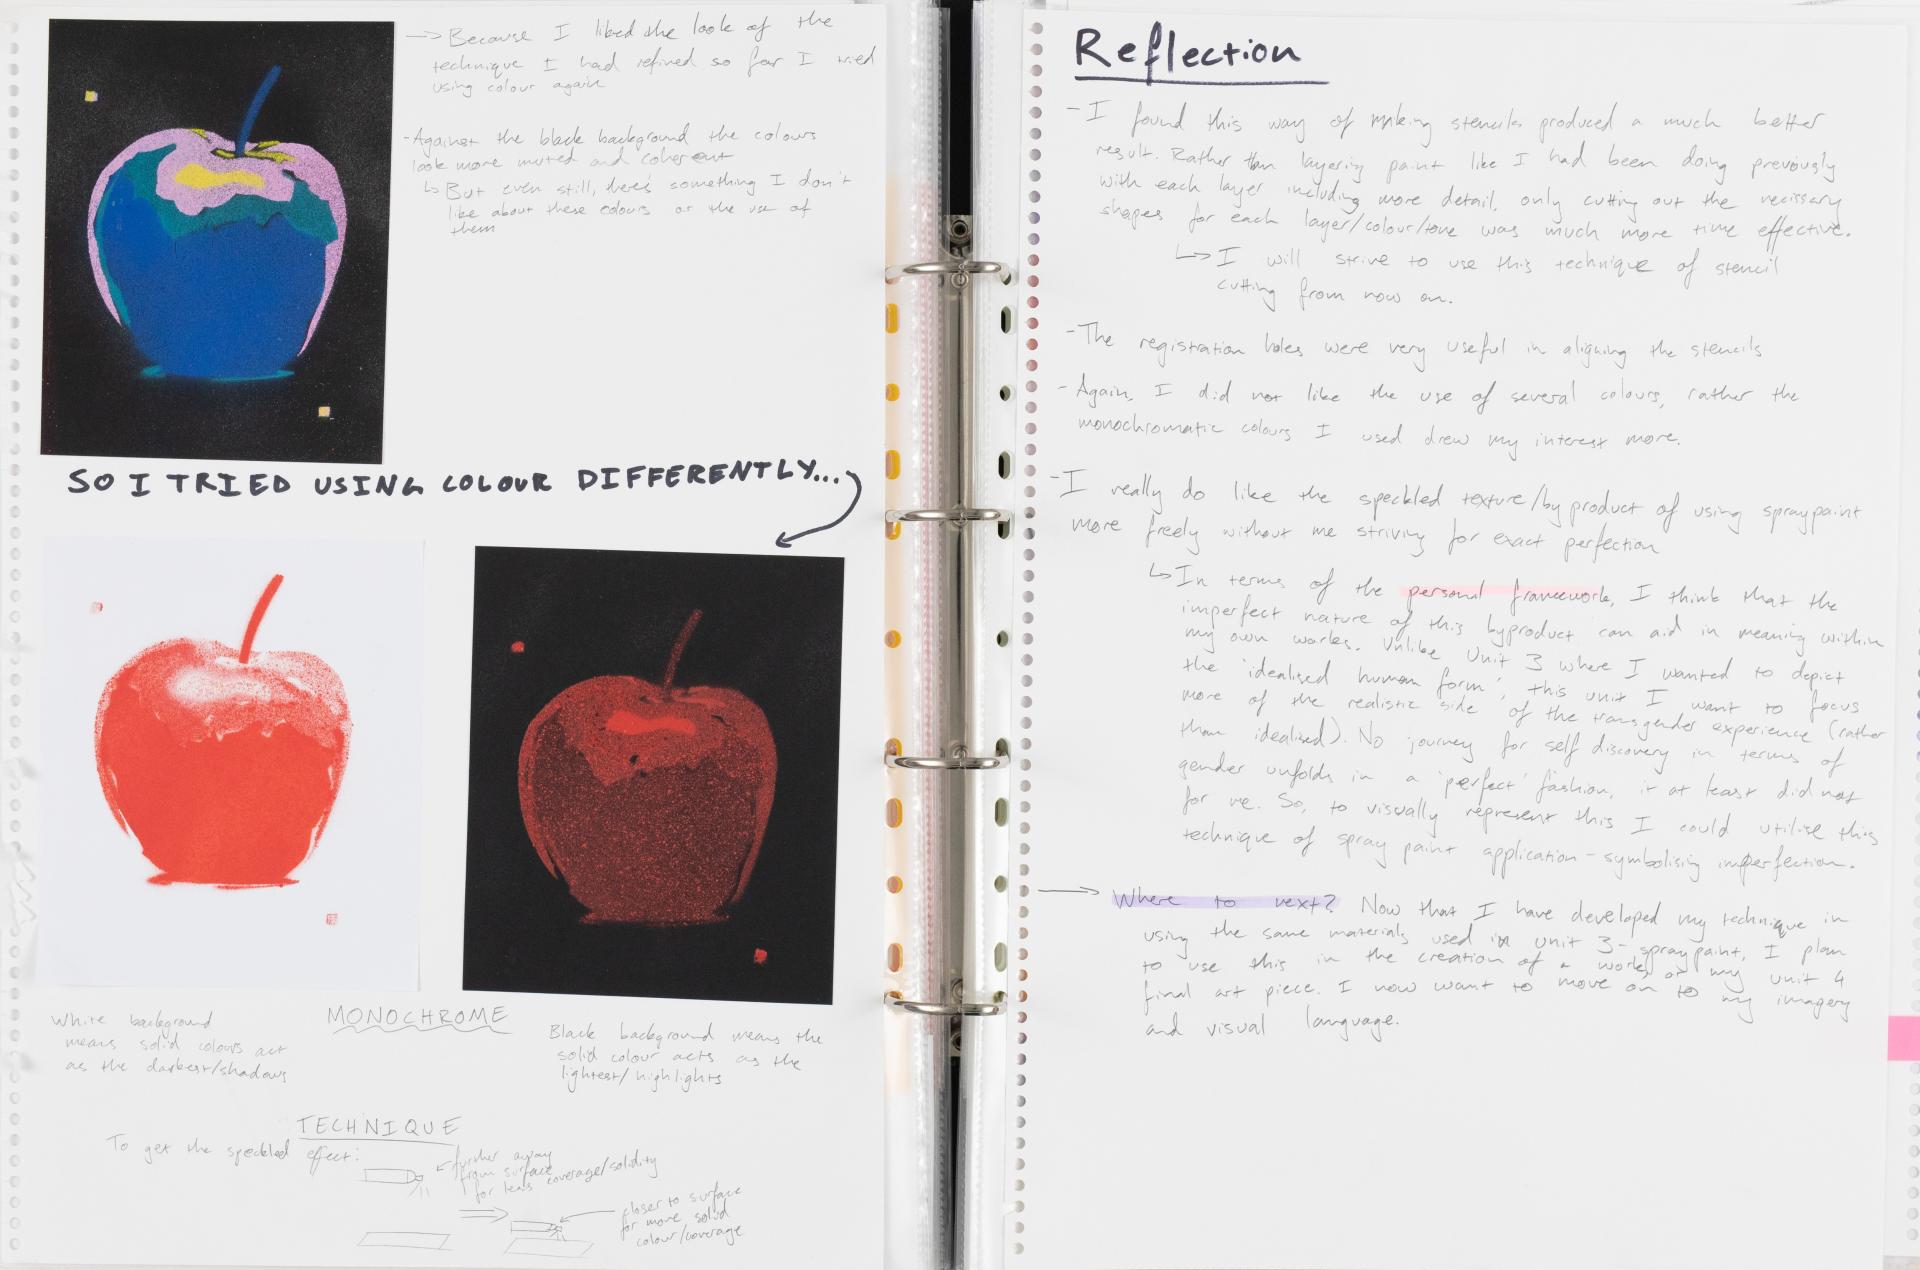 → Because I liked the look of the
technique I had refined so far I tried
using colour again
- Against the black background the colours
look more muted and coherent
↳ But even still, there's something I don't
like about these colours or the use of
them
SO I TRIED USING COLOUR DIFFERENTLY...
MONOCHROME
White background
means solid colours act
as the darkest/shadows
Black background means the
solid colour acts as the
lightest/highlights
TECHNIQUE
To get the speckled effect:
further away
from surface
for less coverage/solidity
closer to surface
for more solid
colour/coverage
Reflection
- I found this way of making stencils produced a much better
result. Rather than layering paint like I had been doing previously
with each layer including more detail, only cutting out the necissary
shapes for each layer/colour/tone was much more time effective.
↳ I will strive to use this technique of stencil
cutting from now on.
- The registration holes were very useful in aligning the stencils
- Again, I did not like the use of several colours, rather the
monochromatic colours I used drew my interest more.
- I really do like the speckled texture/by product of using spraypaint
more freely without me striving for exact perfection
↳ In terms of the personal framework, I think that the
imperfect nature of this byproduct can aid in meaning within
my own works. Unlike Unit 3 where I wanted to depict
the 'idealised human form', this unit I want to focus
more of the realistic side of the transgender experience (rather
than idealised). No journey for self discovery in terms of
gender unfolds in a 'perfect' fashion, it at least did not
for me. So, to visually represent this I could utilise this
technique of spray paint application - symbolising imperfection.
→ Where to next? Now that I have developed my technique in
using the same materials used in unit 3 - spraypaint, I plan
to use this in the creation of a work, or my unit 4
final art piece. I now want to move on to my imagery
and visual language.